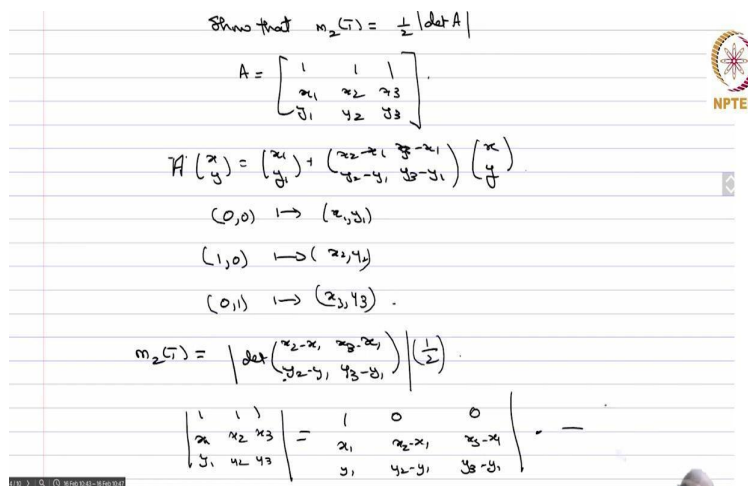 Show that m₂(T) = ½ |det A|
A = [ 1 1 1
x₁ x₂ x₃
y₁ y₂ y₃ ].
NPTE
A (x y) = (x₁ y₁) + (x₂-x₁ x₃-x₁
y₂-y₁ y₃-y₁) (x y)
(0,0) ↦ (x₁,y₁)
(1,0) ↦ (x₂,y₂)
(0,1) ↦ (x₃,y₃).
m₂(T) = |det (x₂-x₁ x₃-x₁
y₂-y₁ y₃-y₁)| (½).
| 1 1 1
x₁ x₂ x₃
y₁ y₂ y₃ | = | 1 0 0
x₁ x₂-x₁ x₃-x₁
y₁ y₂-y₁ y₃-y₁ | . —
16 Feb 10:43 - 16 Feb 10:47